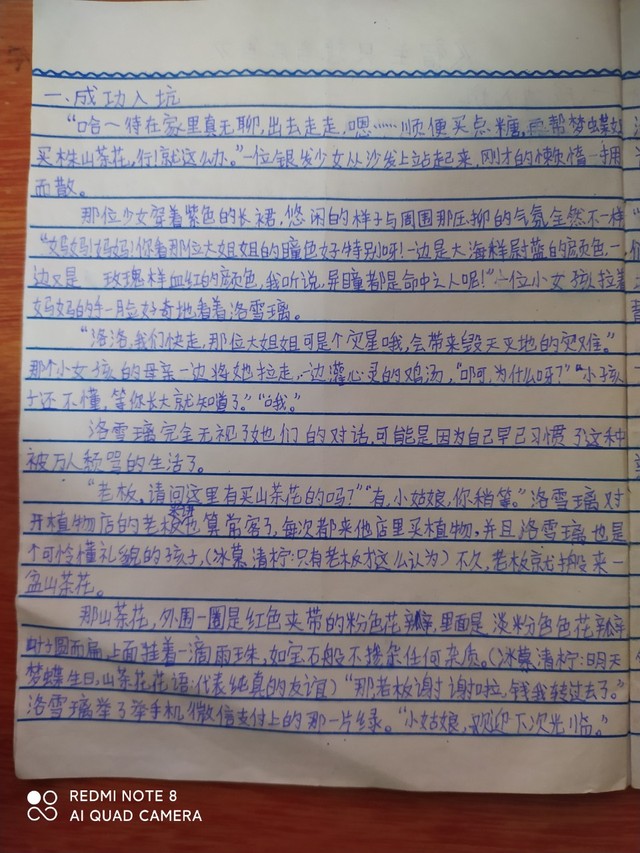 一、成功入坑
“哈～待在家里真无聊,出去走走,嗯……顺便买点糖,再帮梦蝶姐
买株山茶花,行!就这么办。”一位银发少女从沙发上站起来,刚才的懒惰一扫
而散。
那位少女穿着紫色的长裙,悠闲的样子与周围那压抑的气氛全然不一样
“妈妈!妈妈!你看那位大姐姐的瞳色好特别呀!一边是大海样蔚蓝的颜色,一
边又是 玫瑰样血红的颜色,我听说,异瞳都是命中之人呢!”一位小女孩拉着
妈妈的手一脸好奇地看着洛雪璃。
“洛洛,我们快走,那位大姐姐可是个灾星哦,会带来毁天灭地的灾难。”
那个小女孩的母亲一边将她拉走,一边灌心灵的鸡汤,“啊,为什么呀?”“小孩
子还不懂,等你长大就知道了。”“哦。”
洛雪璃完全无视了她们的对话,可能是因为自己早已习惯了这种
被万人频骂的生活了。
“老板,请问这里有买山茶花的吗?”“有,小姑娘,你稍等。”洛雪璃对
开植物店的老板也算常客了,每次都来他店里买植物,并且洛雪璃也是
个可怜懂礼貌的孩子,(冰慕清柠:只有老板才这么认为)不久,老板就搬来一
盆山茶花。
那山茶花,外围一圈是红色夹带的粉色花瓣,里面是淡粉色色花瓣
叶子圆而扁,上面挂着一滴雨珠,如宝石般不掺杂任何杂质。(冰慕清柠:明天
梦蝶生日,山茶花花语:代表纯真的友谊)“那老板谢谢啦,钱我转过去了。”
洛雪璃举了举手机微信支付上的那一片绿。“小姑娘,欢迎下次光临。”
REDMI NOTE 8
AI QUAD CAMERA